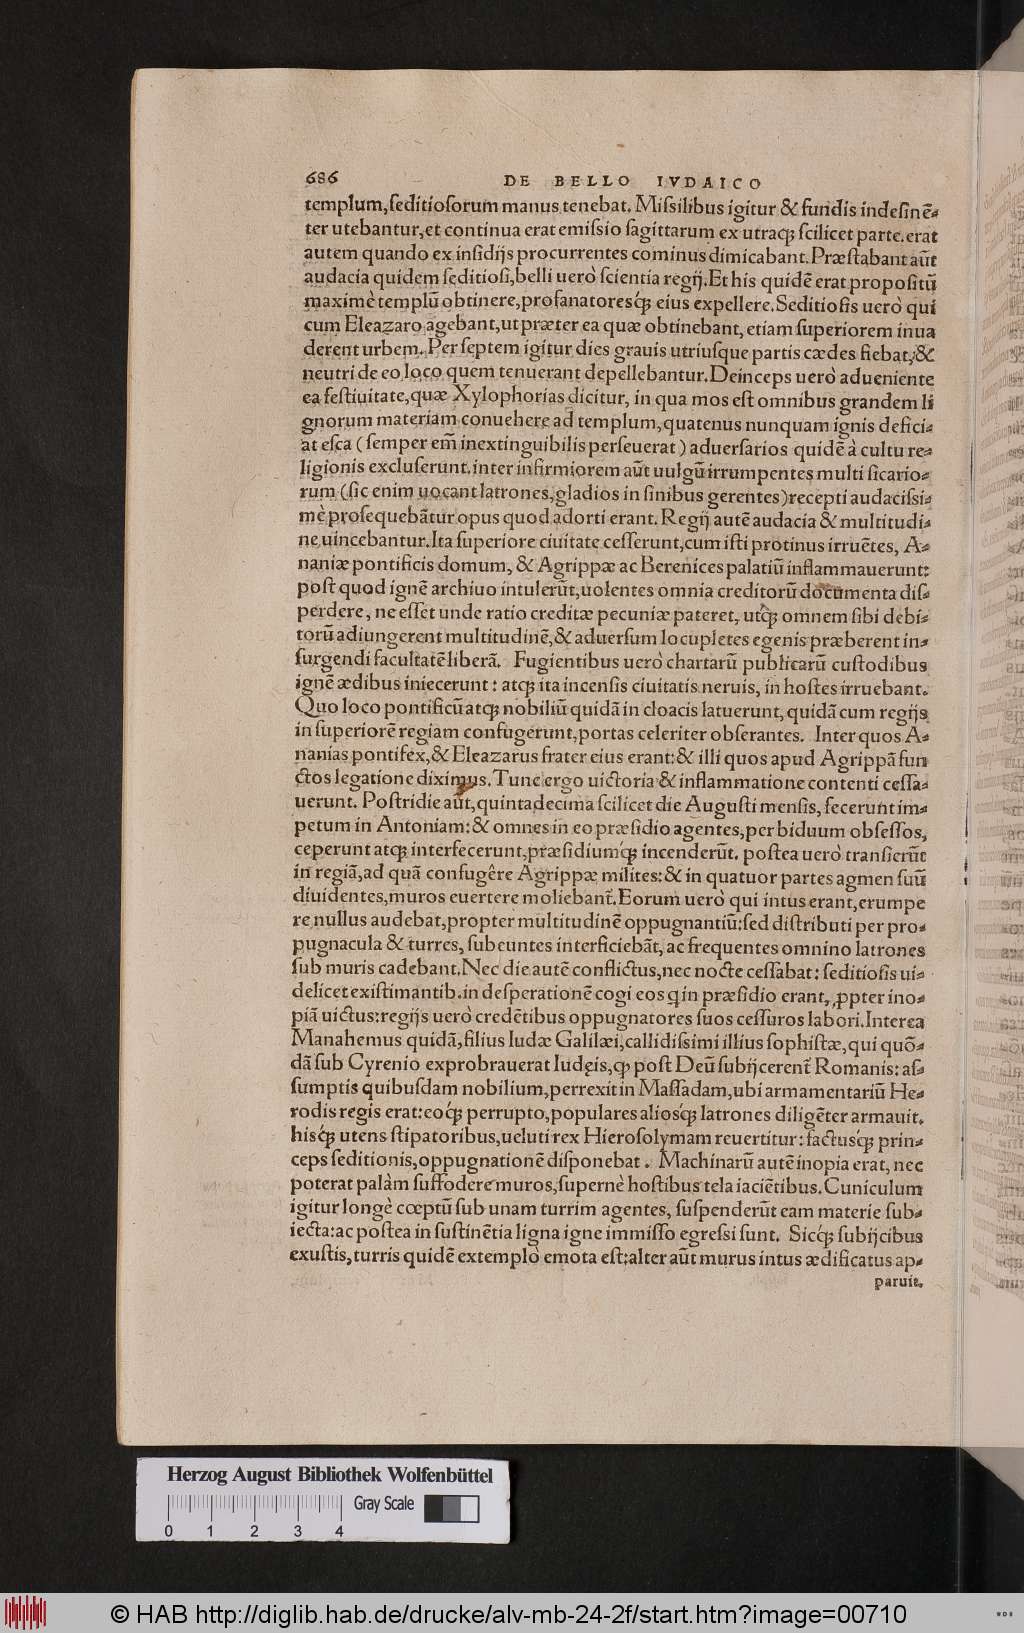 686 DE BELLO IVDAICO
templum,ſeditioſorum manus tenebat. Miſsilibus igitur & fundis indeſinẽ-
ter utebantur,et continua erat emiſsio ſagittarum ex utraq; ſcilicet parte.erat
autem quando ex inſidijs procurrentes cominus dimicabant.Præſtabant aũt
audacia quidem ſeditioſi,belli uerò ſcientia regij.Et his quidẽ erat propoſitũ
maximè templũ obtinere,profanatoresq́; eius expellere.Seditioſis uerò qui
cum Eleazaro agebant,ut præter ea quæ obtinebant,etiam ſuperiorem inua
derent urbem. Per ſeptem igitur dies grauis utriuſque partis cædes fiebat,&
neutri de eo loco quem tenuerant depellebantur.Deinceps uerò adueniente
ea feſtiuitate,quæ Xylophorias dicitur, in qua mos eſt omnibus grandem li
gnorum materiam conuehere ad templum,quatenus nunquam ignis defici-
at eſca (ſemper em̃ inextinguibilis perſeuerat) aduerſarios quidẽ à cultu re-
ligionis excluſerunt.inter infirmiorem aũt uulgũ irrumpentes multi ſicario-
rum (ſic enim uocant latrones,gladios in ſinibus gerentes)recepti audaciſsi-
mè proſequebãtur opus quod adorti erant. Regij autẽ audacia & multitudi-
ne uincebantur.Ita ſuperiore ciuitate ceſſerunt,cum iſti protinus irruẽtes, A-
naniæ pontificis domum, & Agrippæ ac Berenices palatiũ inflammauerunt:
poſt quod ignẽ archiuo intulerũt,uolentes omnia creditorũ documenta diſ-
perdere, ne eſſet unde ratio creditæ pecuniæ pateret, utq́; omnem ſibi debi-
torũ adiungerent multitudinẽ,& aduerſum locupletes egenis præberent in-
ſurgendi facultatẽ liberã. Fugientibus uerò chartarũ publicarũ cuſtodibus
ignẽ ædibus iniecerunt: atq; ita incenſis ciuitatis neruis, in hoſtes irruebant.
Quo loco pontificũ atq; nobiliũ quidã in cloacis latuerunt,quidã cum regijs
in ſuperiorẽ regiam confugerunt,portas celeriter obſerantes. Inter quos A-
nanias pontifex,& Eleazarus frater eius erant:& illi quos apud Agrippã fun
ctos legatione diximus.Tunc ergo uictoria & inflammatione contenti ceſſa-
uerunt. Poſtridie aũt,quintadecima ſcilicet die Auguſti menſis, fecerunt im-
petum in Antoniam:& omnes in eo præſidio agentes,per biduum obſeſſos,
ceperunt atq; interfecerunt,præſidiumq́; incenderũt. poſtea uerò tranſierũt
in regiã,ad quã confugêre Agrippæ milites:& in quatuor partes agmen ſuũ
diuidentes,muros euertere moliebant̃.Eorum uerò qui intus erant,erumpe
re nullus audebat,propter multitudinẽ oppugnantiũ:ſed diſtributi per pro-
pugnacula & turres, ſubeuntes interficiebãt, ac frequentes omnino latrones
ſub muris cadebant.Nec die autẽ conflictus,nec nocte ceſſabat: ſeditioſis ui-
delicet exiſtimantib.in deſperationẽ cogi eos q̃ in præſidio erant, ꝓpter ino-
piã uictus:regijs uerò credẽtibus oppugnatores ſuos ceſſuros labori.Interea
Manahemus quidã,filius Iudæ Galilæi,callidiſsimi illius ſophiſtæ,qui quõ-
dã ſub Cyrenio exprobrauerat Iudęis,ꝙ poſt Deũ ſubijcerent̃ Romanis: aſ-
ſumptis quibuſdam nobilium,perrexit in Maſſadam,ubi armamentariũ He-
rodis regis erat:eoq́; perrupto,populares aliosq́; latrones diligẽter armauit.
hisq́; utens ſtipatoribus,ueluti rex Hieroſolymam reuertitur: factusq́; prin-
ceps ſeditionis,oppugnationẽ diſponebat. Machinarũ autẽ inopia erat, nec
poterat palàm ſuffodere muros,ſupernè hoſtibus tela iaciẽtibus.Cuniculum
igitur longè cœptũ ſub unam turrim agentes, ſuſpenderũt eam materie ſub-
iecta:ac poſtea in ſuſtinẽtia ligna igne immiſſo egreſsi ſunt. Sicq́; ſubijcibus
exuſtis,turris quidẽ extemplò emota eſt:alter aũt murus intus ædificatus ap-
paruit.
Herzog August Bibliothek Wolfenbüttel
Gray Scale
0 1 2 3 4
© HAB http://diglib.hab.de/drucke/alv-mb-24-2f/start.htm?image=00710